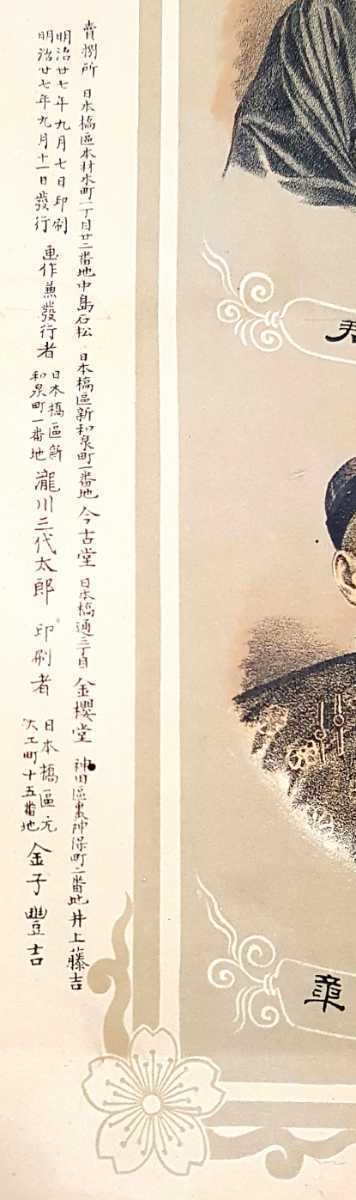 賣捌所 日本橋區本材木町一丁目廿二番地中島石松 日本橋區新和泉町一番地 今古堂 日本橋通三丁目 金櫻堂 神田區裏神保町二番地井上藤吉
明治廿七年九月七日印刷
明治廿七年九月十一日發行
画作兼發行者 日本橋區新和泉町一番地 瀧川三代太郎 印刷者 日本橋區元大工町十五番地 金子豐吉
章